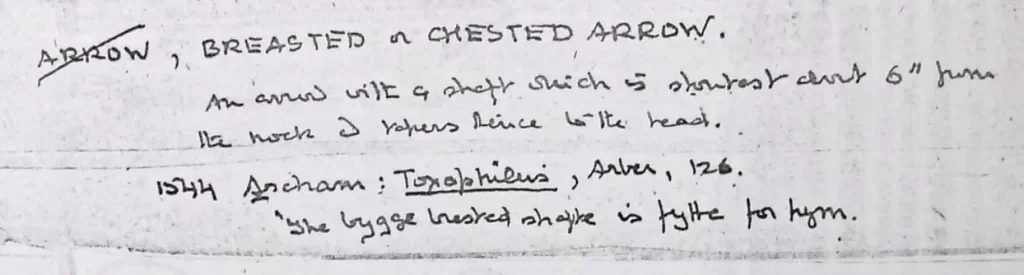 ARROW, BREASTED or CHESTED ARROW.
An arrow with a shaft which is stoutest about 6" from
the nock & tapers thence to the head.
1544 Ascham : Toxophilus, Arber, 126.
"The bygge brested shafte is fytte for hym.